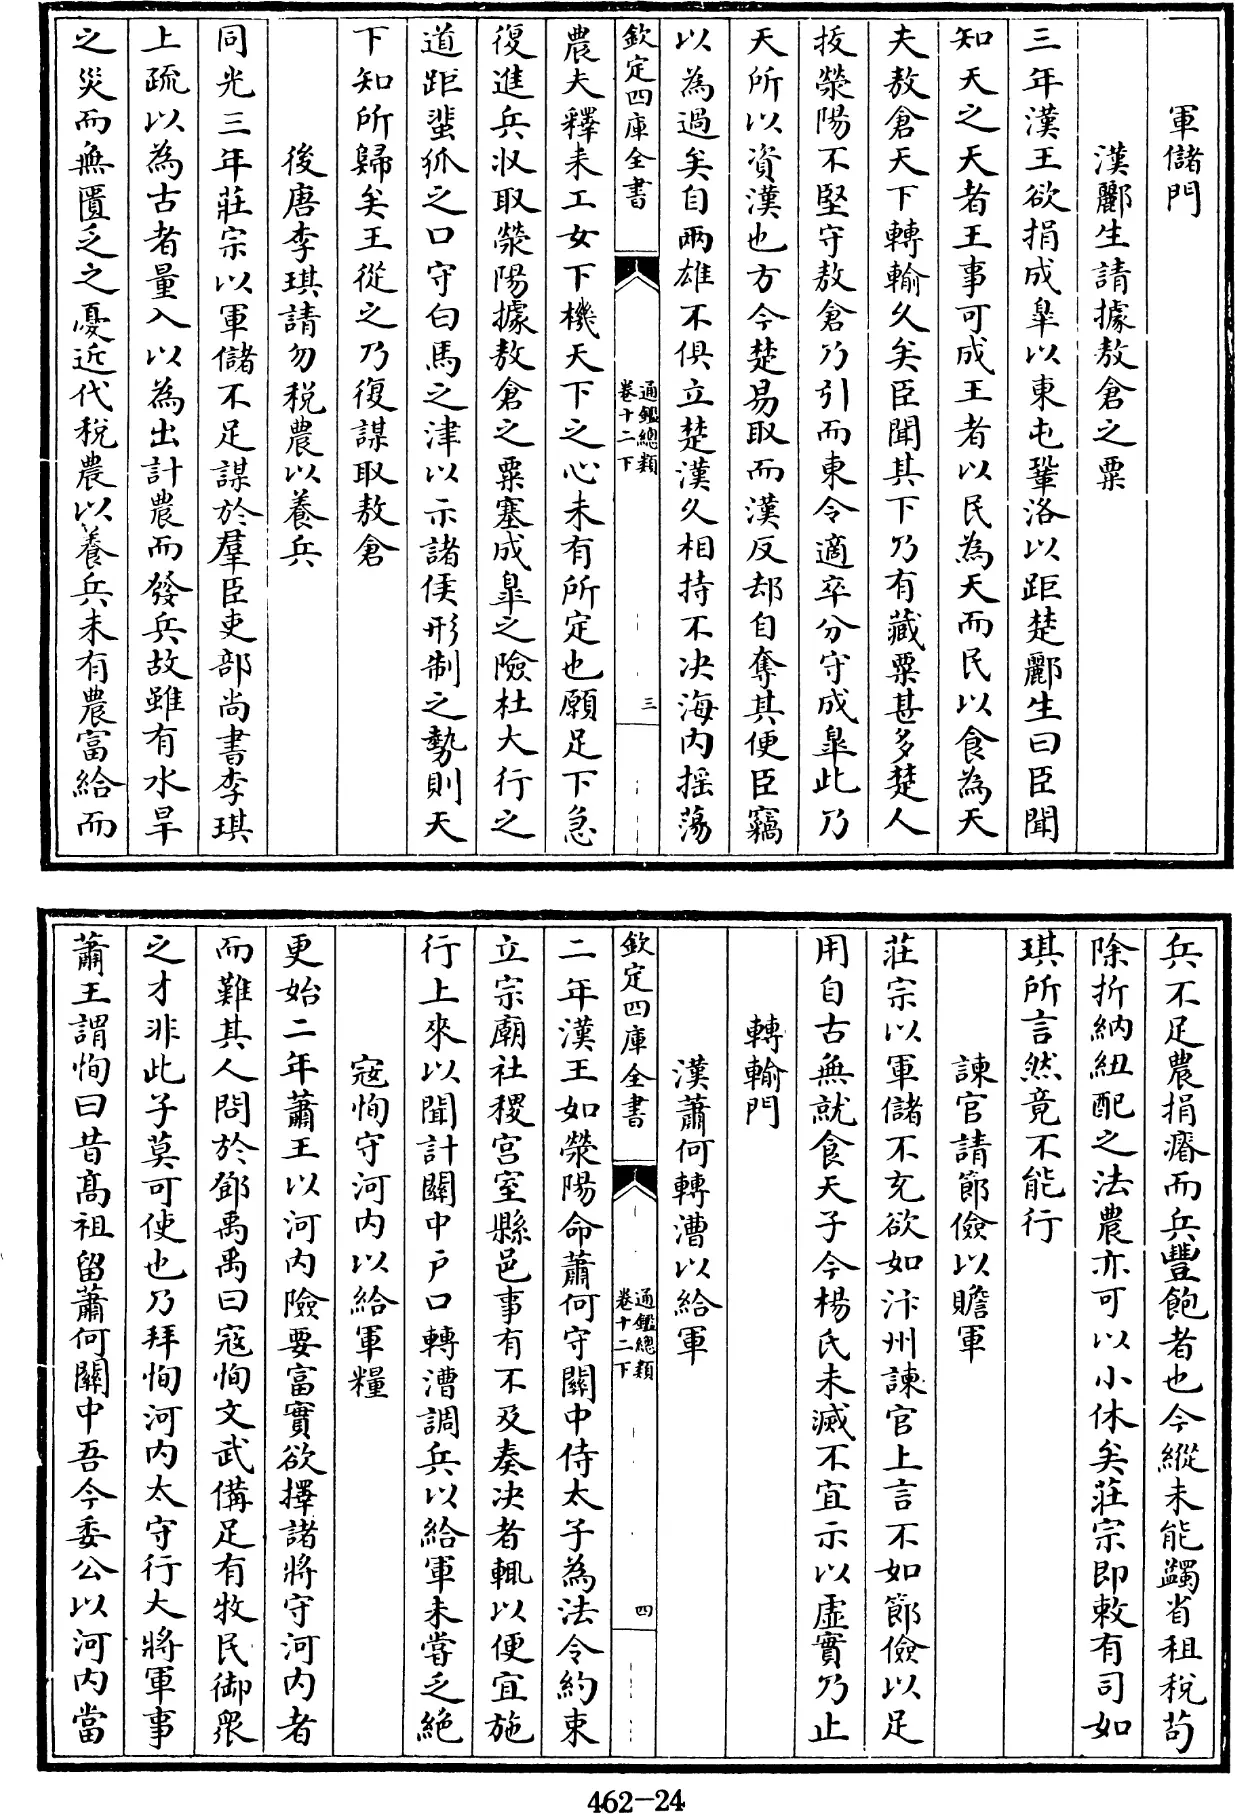 軍儲門
漢酈生請據敖倉之粟
三年漢王欲捐成臯以東屯鞏洛以距楚酈生曰臣聞
知天之天者王事可成王者以民為天而民以食為天
夫敖倉天下轉輸久矣臣聞其下乃有藏粟甚多楚人
拔滎陽不堅守敖倉乃引而東令適卒分守成臯此乃
天所以資漢也方今楚易取而漢反却自奪其便臣竊
以為過矣自兩雄不俱立楚漢久相持不決海内揺蕩
欽定四庫全書
通鑑總類
卷十二下
三
農夫釋耒工女下機天下之心未有所定也願足下急
復進兵收取滎陽據敖倉之粟塞成臯之險杜大行之
道距蜚狐之口守白馬之津以示諸侯形制之勢則天
下知所歸矣王從之乃復謀取敖倉
後唐李琪請勿税農以養兵
同光三年莊宗以軍儲不足謀於羣臣吏部尚書李琪
上疏以為古者量入以為出計農而發兵故雖有水旱
之災而無匱乏之憂近代税農以養兵未有農富給而
兵不足農捐瘠而兵豐飽者也今縱未能蠲省租税苟
除折納紐配之法農亦可以小休矣莊宗即敕有司如
琪所言然竟不能行
諫官請節儉以贍軍
莊宗以軍儲不充欲如汴州諫官上言不如節儉以足
用自古無就食天子今楊氏未滅不宜示以虛實乃止
轉輸門
漢蕭何轉漕以給軍
欽定四庫全書
通鑑總類
卷十二下
四
二年漢王如滎陽命蕭何守關中侍太子為法令約束
立宗廟社稷宫室縣邑事有不及奏決者輒以便宜施
行上來以聞計關中户口轉漕調兵以給軍未嘗乏絶
寇恂守河内以給軍糧
更始二年蕭王以河内險要富實欲擇諸將守河内者
而難其人問於鄧禹禹曰寇恂文武備足有牧民御衆
之才非此子莫可使也乃拜恂河内太守行大將軍事
蕭王謂恂曰昔髙祖留蕭何關中吾今委公以河内當
462-24